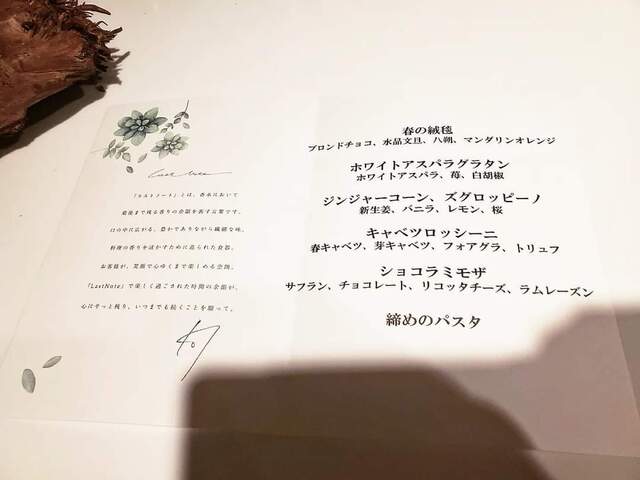 Last Note
「ラストノート」とは、香水において
最後まで残る香りの余韻を表す言葉です。
口の中に広がる、豊かでありながら繊細な味。
料理の香りを活かすために造られた食器。
お客様が、笑顔で心ゆくまで楽しめる空間。
「LastNote」で楽しく過ごされた時間の余韻が、
心にそっと残り、いつまでも続くことを願って。
春の絨毯
ブロンドチョコ、水晶文旦、八朔、マンダリンオレンジ
ホワイトアスパラグラタン
ホワイトアスパラ、苺、白胡椒
ジンジャーコーン、ズグロッピーノ
新生姜、バニラ、レモン、桜
キャベツロッシーニ
春キャベツ、芽キャベツ、フォアグラ、トリュフ
ショコラミモザ
サフラン、チョコレート、リコッタチーズ、ラムレーズン
締めのパスタ